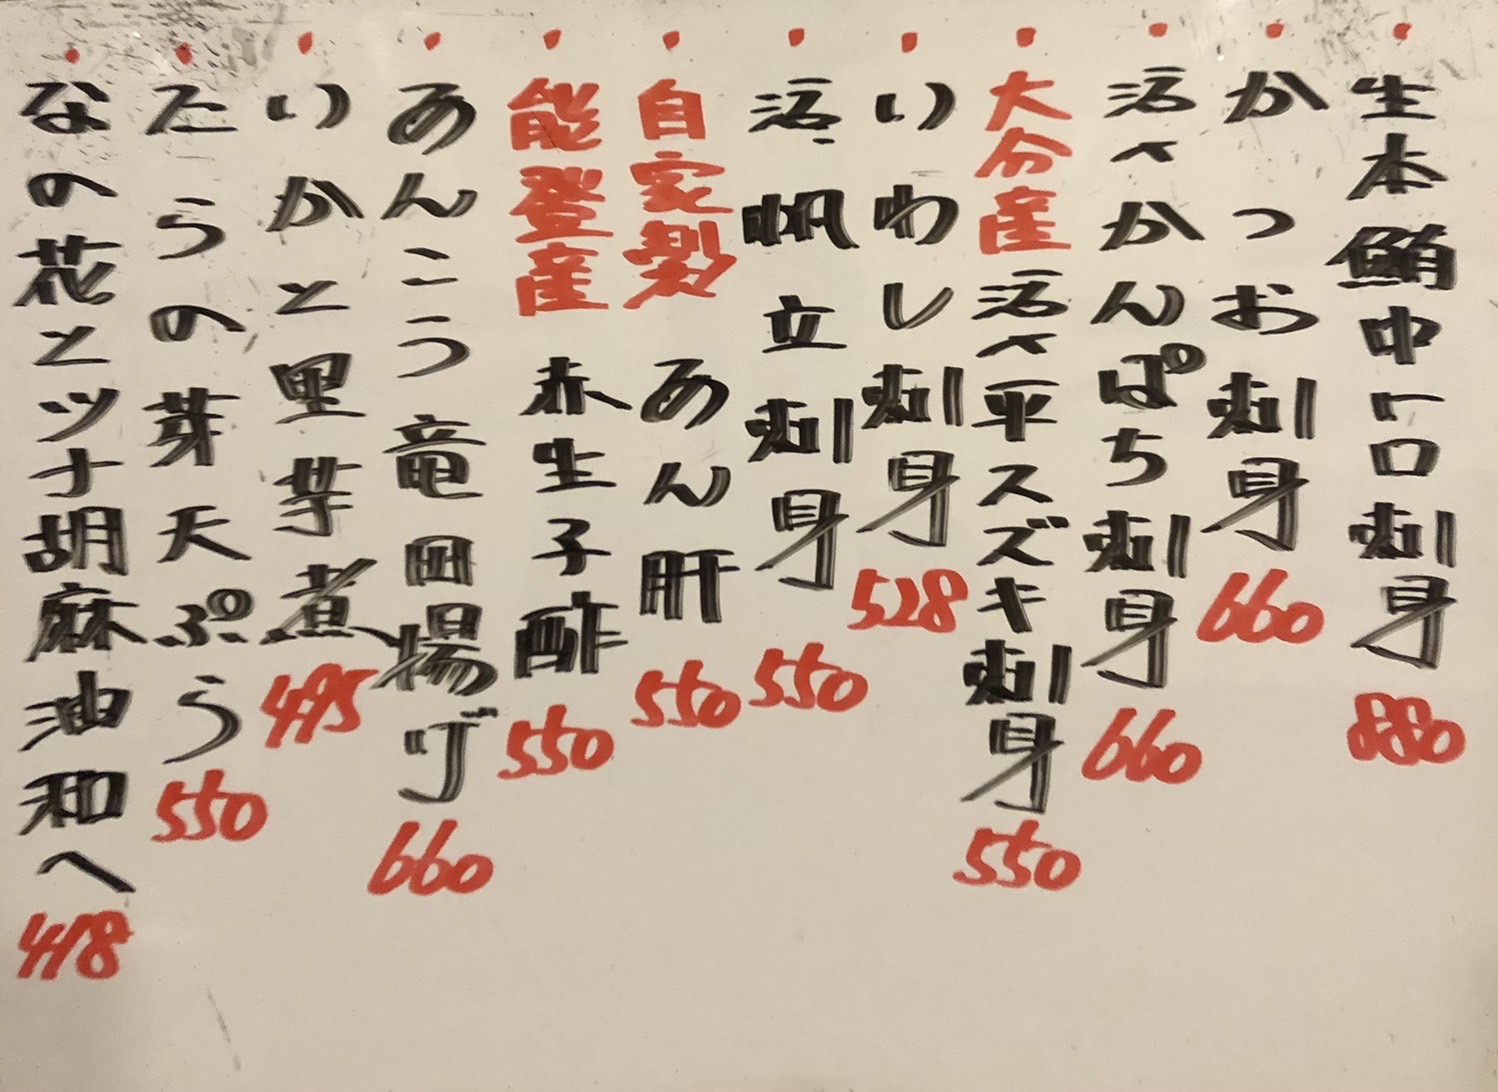 ・生本鮪中トロ刺身 880
・かつお刺身 660
・活〆かんぱち刺身 660
・大分産活〆平スズキ刺身 550
・いわし刺身 528
・活帆立刺身 550
・自家製あん肝 550
・能登産赤生子酢 550
・あんこう竜田揚げ 660
・いかと里芋煮 495
・たらの芽天ぷら 550
・なの花とツナ胡麻油和へ 418